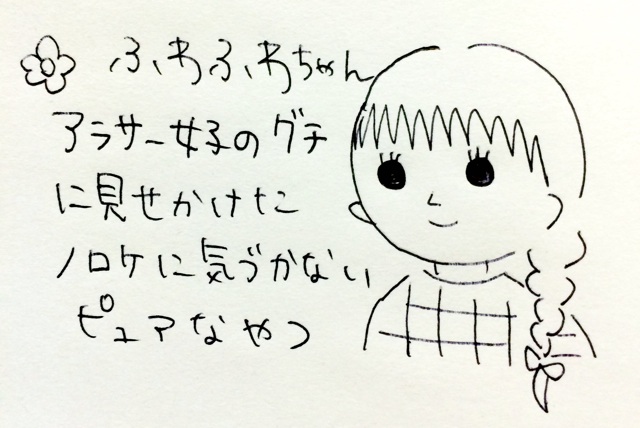 ふわふわちゃん
アラサー女子のグチ
に見せかけた
ノロケに気づかない
ピュアなやつ